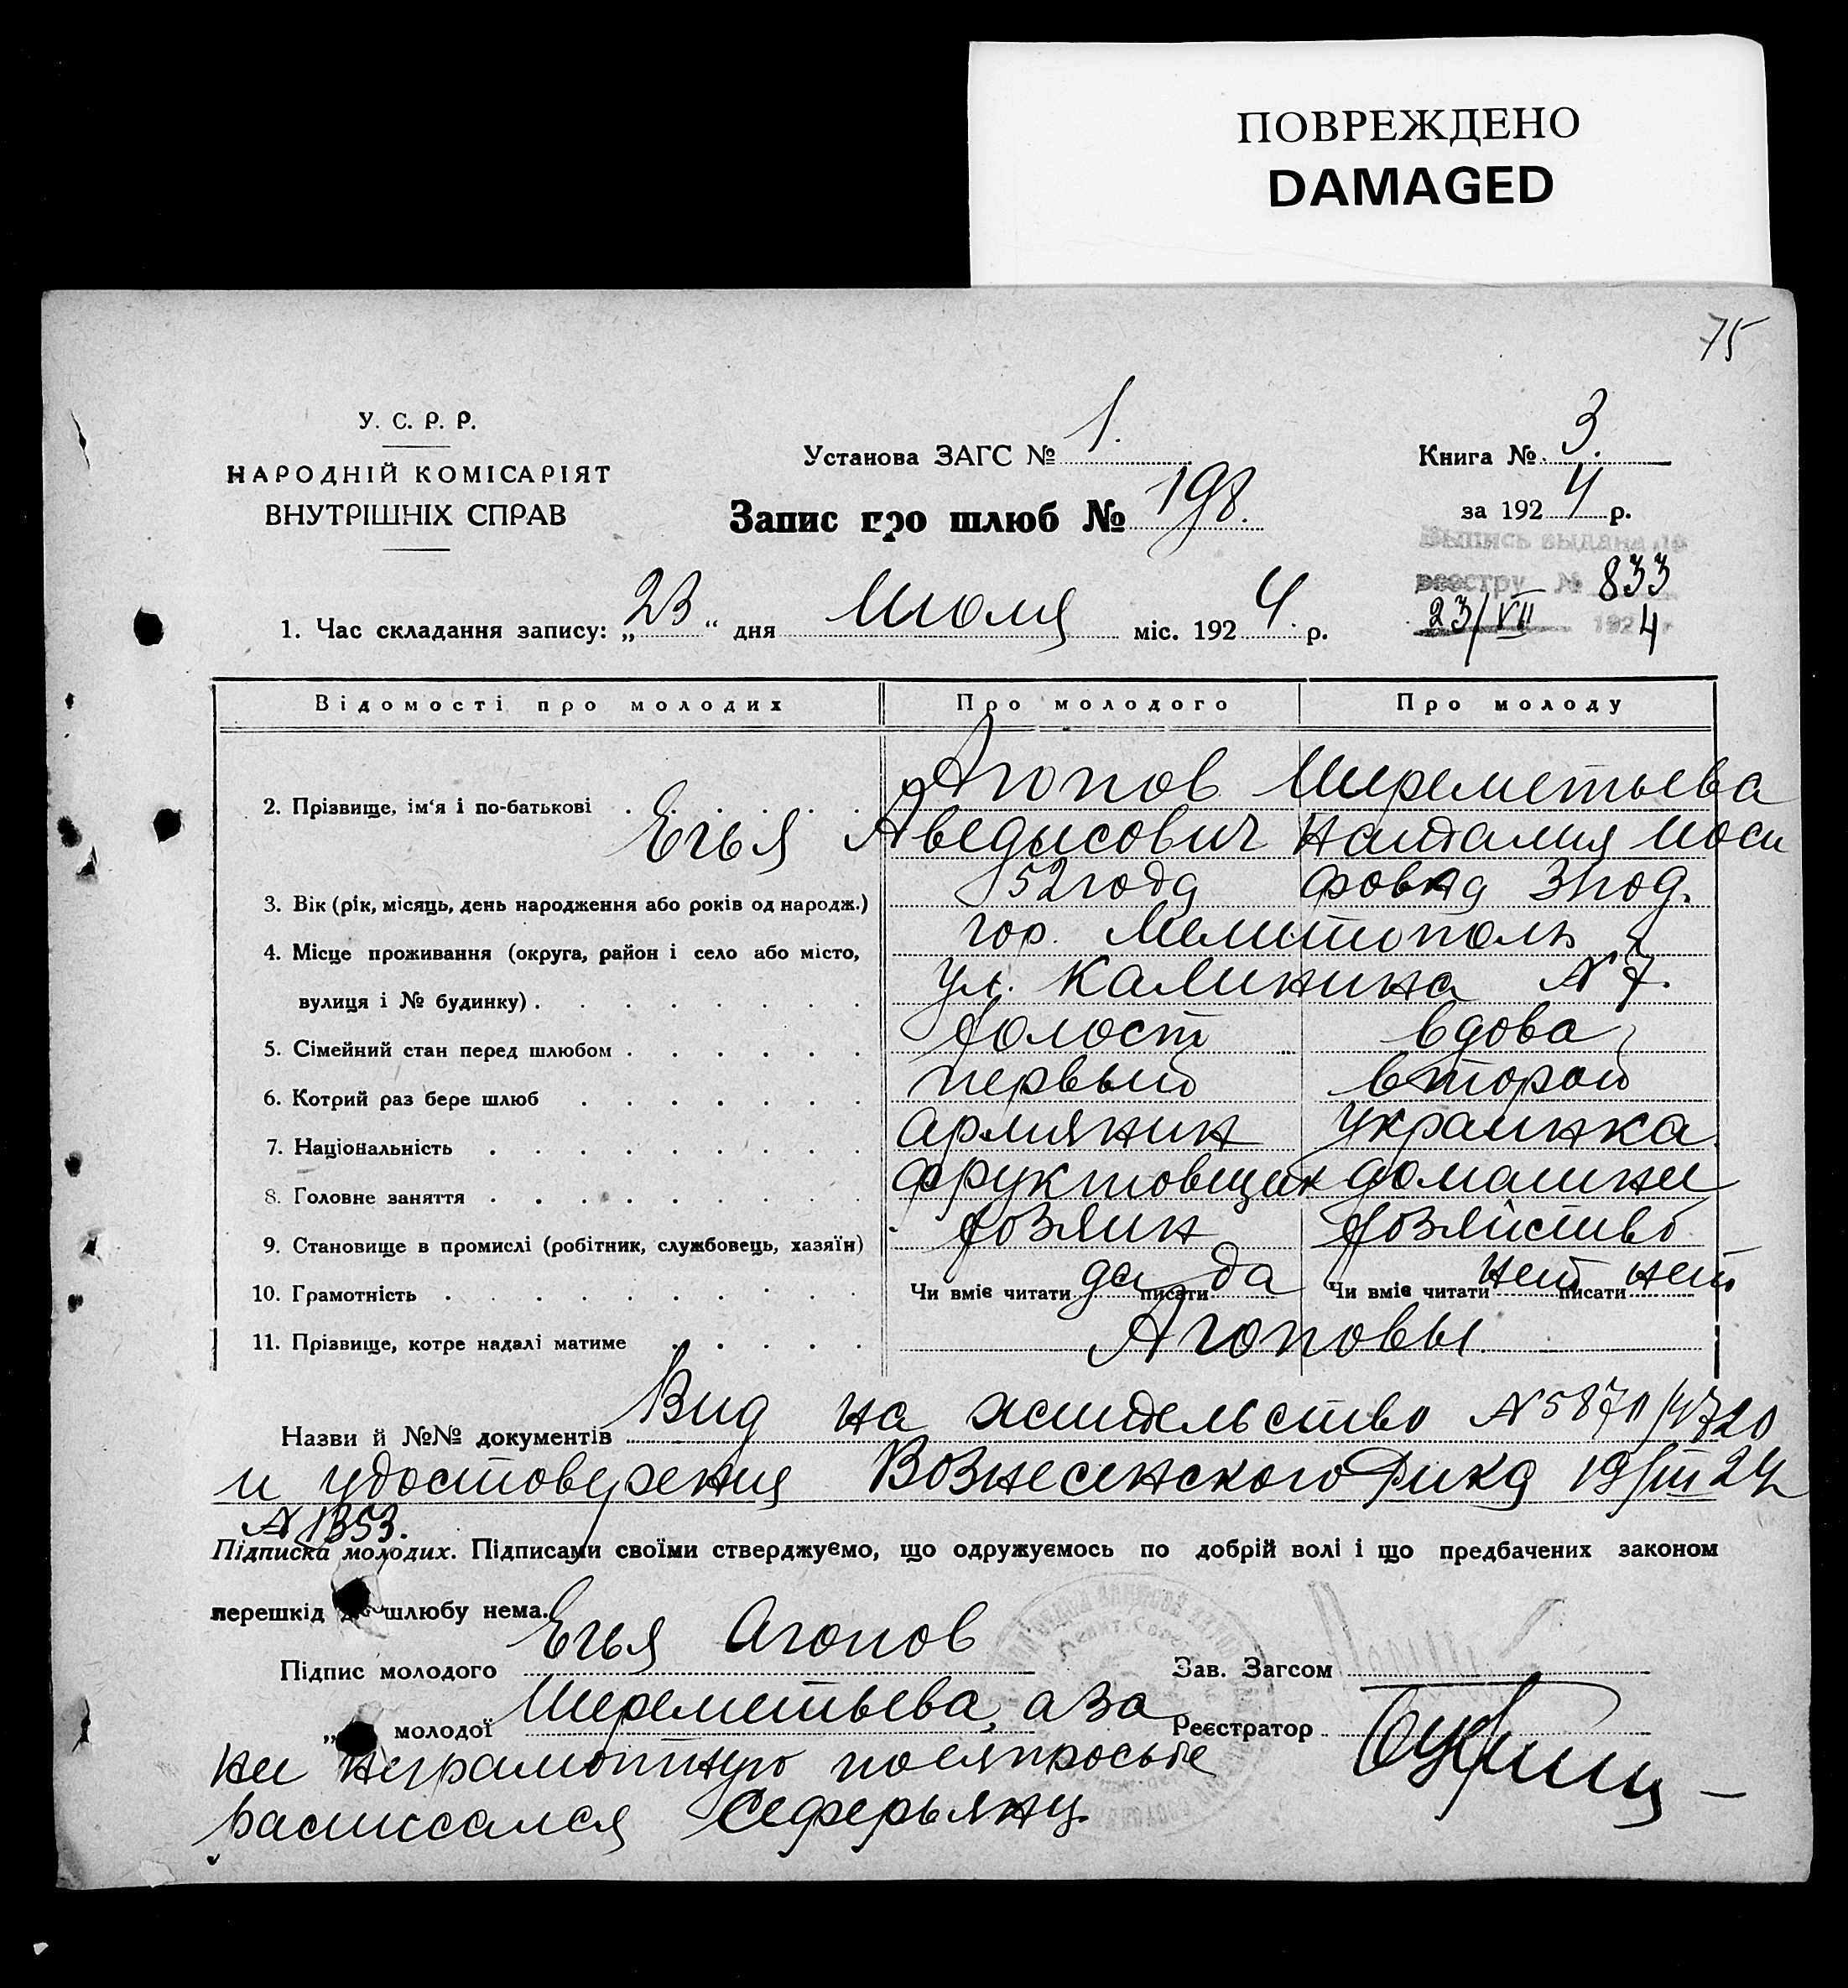 ПОВРЕЖДЕНО
DAMAGED
75
У. С. Р. Р.
НАРОДНІЙ КОМІСАРІЯТ
ВНУТРІШНІХ СПРАВ
Установа ЗАГС № 1.
Запис про шлюб № 198.
Книга № 3.
за 1924 р.
Выпись выдана по
реестру № 833
23/VII 1924 г
1. Час складання запису: „23“ дня Июля міс. 1924. р.
Відомості про молодих Про молодого Про молоду
2. Прізвище, ім'я і по-батькові Агопов Шереметьева
Егья Аведисович Наталия Иоси
3. Вік (рік, місяць, день народження або років од народж.) 52 года фовна 31 год.
4. Місце проживання (округа, район і село або місто, гор. Мелитополь
вулиця і № будинку) ул. Калинина № 7.
5. Сімейний стан перед шлюбом холост вдова
6. Котрий раз бере шлюб первый второй
7. Національність армянин украинка.
8. Головне заняття фруктовщик домашнее
9. Становище в промислі (робітник, службовець, хазяїн) хозяин хозяйство
10. Грамотність Чи вміє читати да писати да Чи вміє читати нет писати нет
11. Прізвище, котре надалі матиме Агоповы.
Назви й №№ документів Вид на жительство № 5870/4720
и удостоверения Вознесенского Рика 19/III 24
№ 1353.
Підписка молодих. Підписами своїми стверджуємо, що одружуємось по добрій волі і що предбачених законом
перешкід до шлюбу нема.
Підпис молодого Егья Агопов Зав. Загсом
„ молодої Шереметьева, а за Реєстратор
нее неграмотную по ея просьбе
расписался Сеферьянц